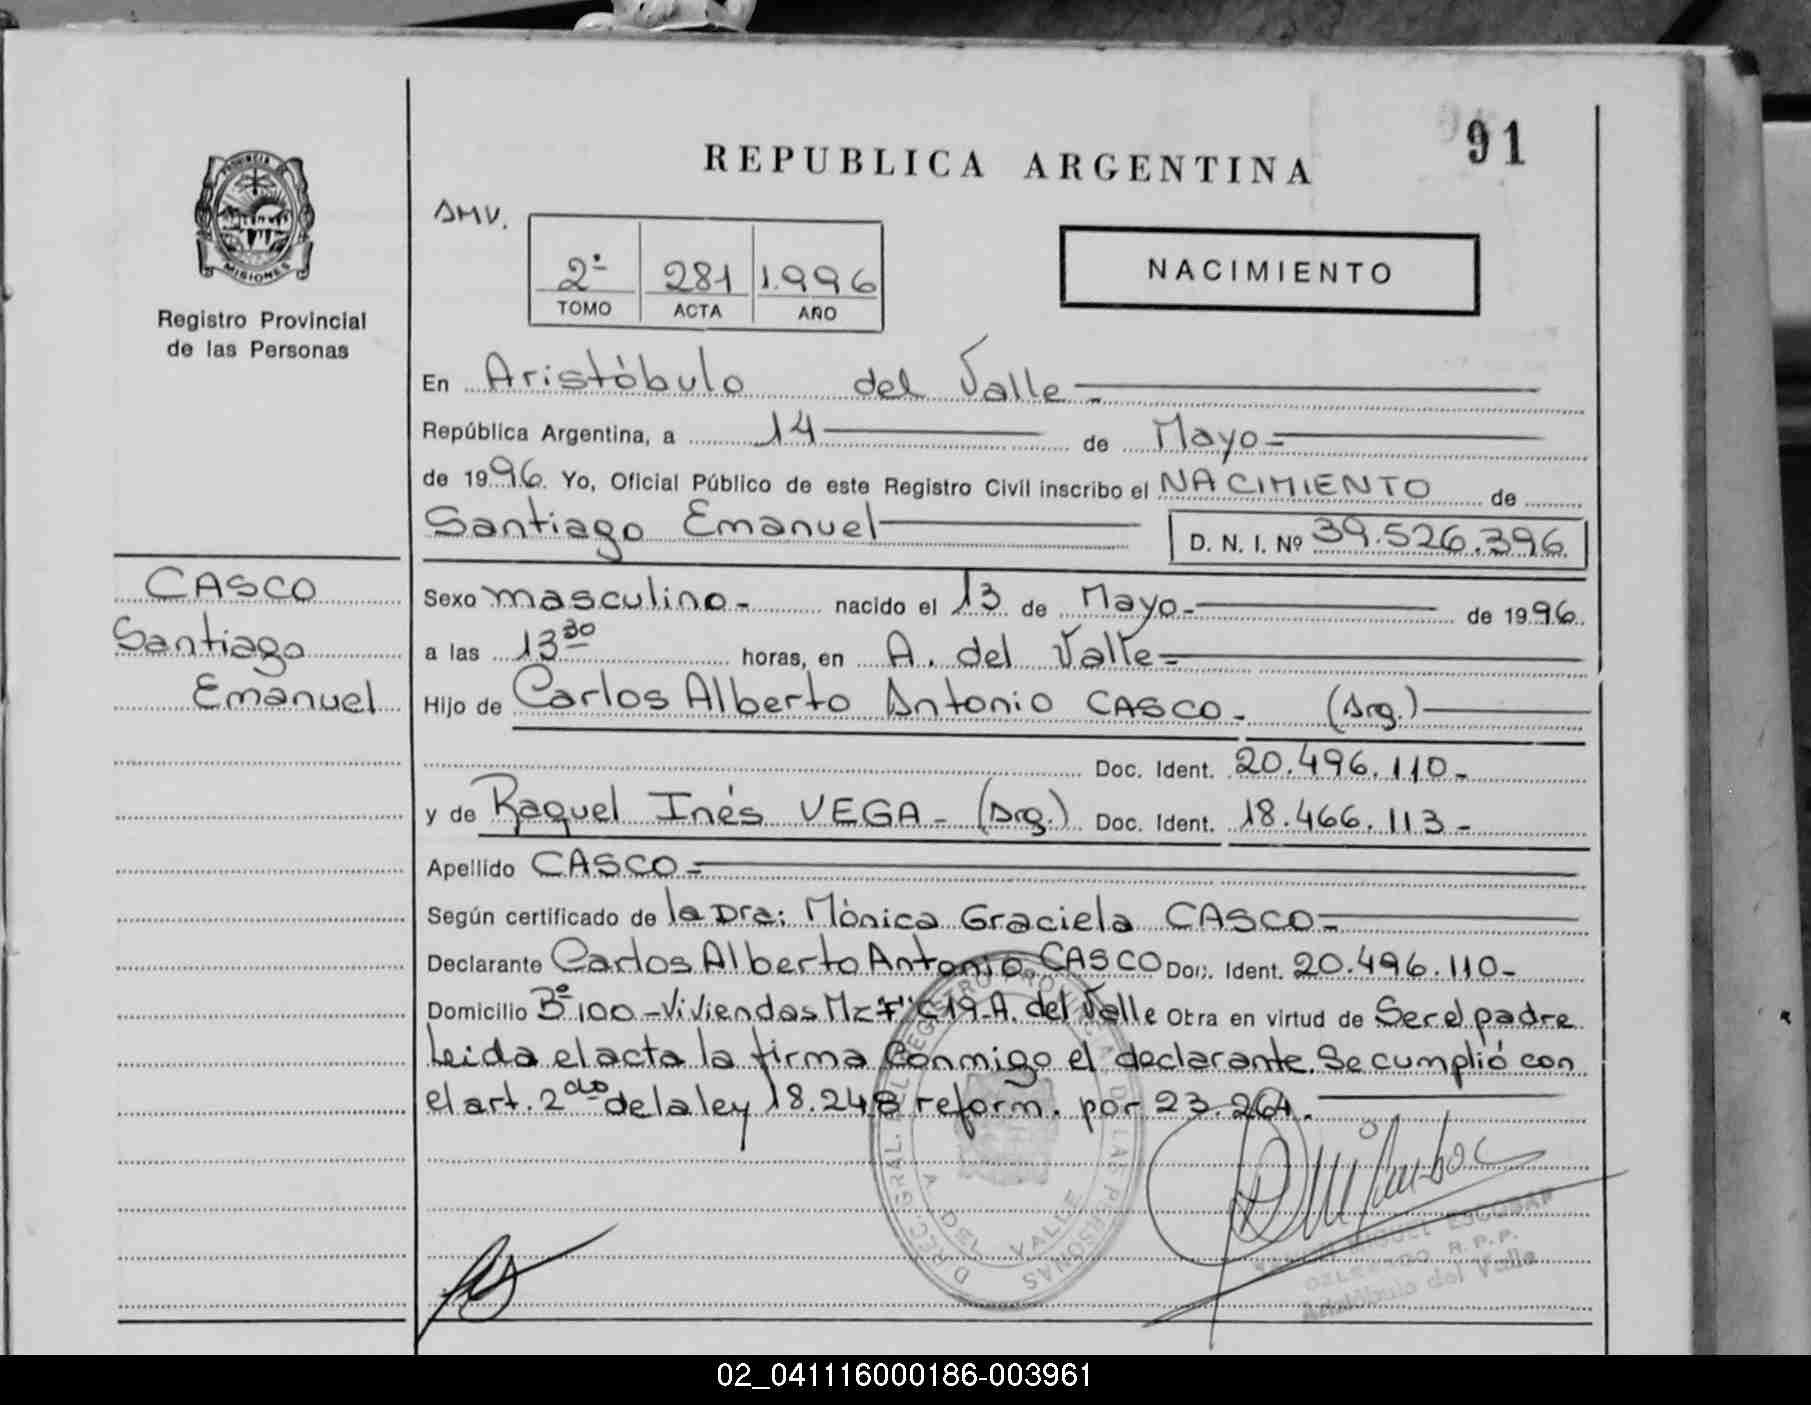 91
REPUBLICA ARGENTINA
PROVINCIA DE
MISIONES
Registro Provincial
de las Personas
AMV.
2º 281 1.996
TOMO ACTA AÑO
NACIMIENTO
En Aristóbulo del Valle.
República Argentina, a 14 de Mayo
de 1996. Yo, Oficial Público de este Registro Civil inscribo el NACIMIENTO de
Santiago Emanuel D. N. I. Nº 39.526.396.
CASCO
Santiago
Emanuel
Sexo masculino- nacido el 13 de Mayo- de 1996.
a las 13 30 horas, en A. del Valle-
Hijo de Carlos Alberto Antonio CASCO- (Arg.)
Doc. Ident. 20.496.110-
y de Raquel Inés VEGA- (Arg.) Doc. Ident. 18.466.113-
Apellido CASCO-
Según certificado de la Dra: Mónica Graciela CASCO-
Declarante Carlos Alberto Antonio CASCO Doc. Ident. 20.496.110-
Domicilio Bº 100-Viviendas Mz "F" C19-A. del Valle Obra en virtud de Ser el padre
Leida el acta la firma Conmigo el declarante. Se cumplió con
el art. 2do de la ley 18.248 reform. por 23.264.
DIREC. GRAL. DEL REGISTRO PROVINCIAL DE LAS PERSONAS
A. DEL VALLE
MIGUEL ESCOBAR
DELEGADO R.P.P.
Aristóbulo del Valle
02_041116000186-003961